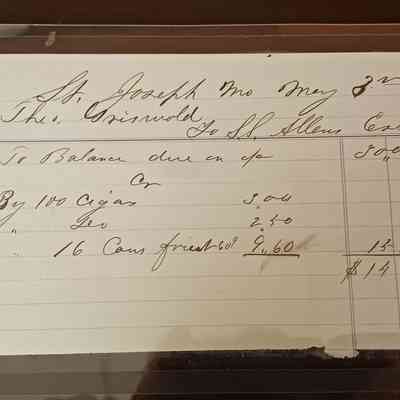 St. Joseph Mo May 3
Theo. Griswold
To S.S. Allens
To Balance due on a/c 30 00
Cr
By 100 Cigars 3.00
" 2.50
" 16 Cans fruit 60¢ 9.60 15
$14